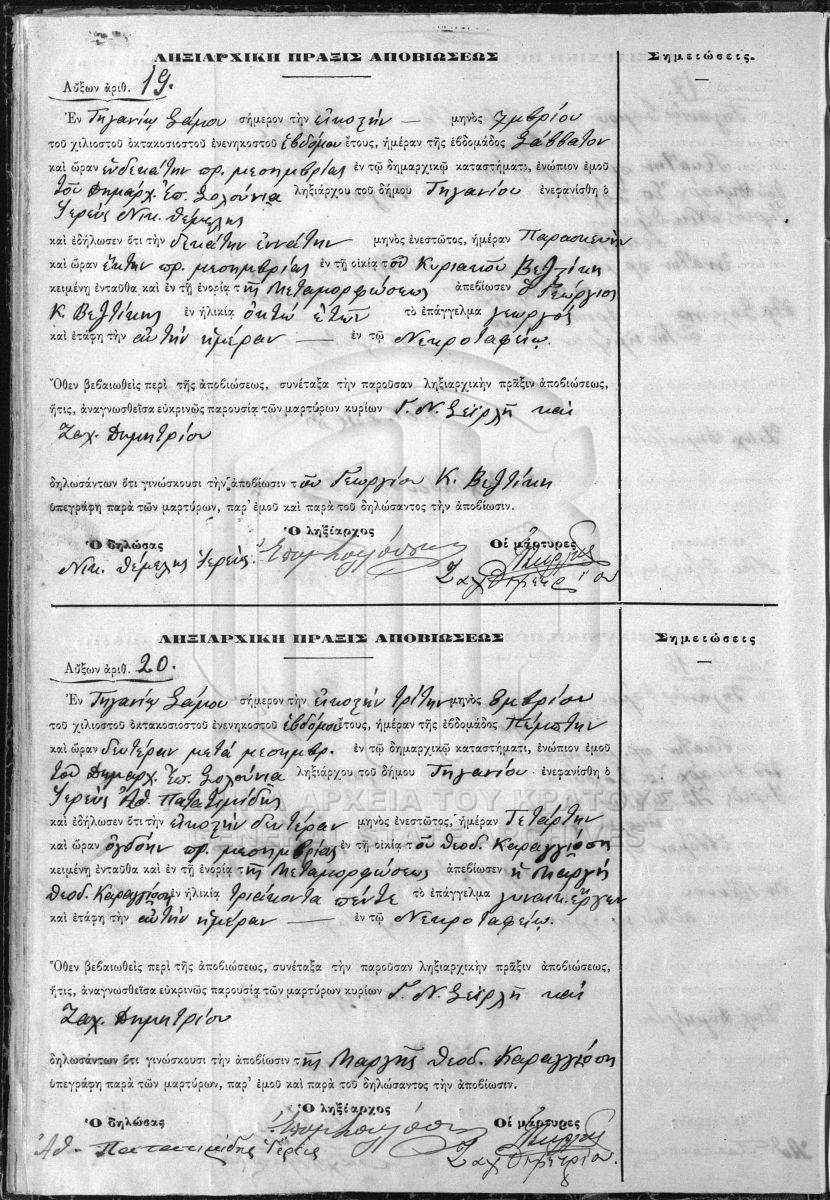 ΛΗΞΙΑΡΧΙΚΗ ΠΡΑΞΙΣ ΑΠΟΒΙΩΣΕΩΣ
Σημειώσεις.
Αὔξων ἀριθ. 19.
Ἐν Τηγανίῳ Σάμου σήμερον τὴν εἰκοστὴν — μηνὸς 7μβρίου
τοῦ χιλιοστοῦ ὀκτακοσιοστοῦ ἐνενηκοστοῦ ἑβδόμου ἔτους, ἡμέραν τῆς ἑβδομάδος Σάββατον
καὶ ὥραν ἑνδεκάτην πρ. μεσημβρίας ἐν τῷ δημαρχικῷ καταστήματι, ἐνώπιον ἐμοῦ
τοῦ Δημάρχ. Ἐπ. Σολούνια ληξιάρχου τοῦ δήμου Τηγανίου ἐνεφανίσθη ὁ
Ἱερεὺς Νικ. Θέμελης
καὶ ἐδήλωσεν ὅτι τὴν δεκάτην ἐννάτην μηνὸς ἐνεστῶτος, ἡμέραν Παρασκευὴν
καὶ ὥραν ἕκτην πρ. μεσημβρίας ἐν τῇ οἰκίᾳ τοῦ Κυριακοῦ Βελτίκη
κειμένῃ ἐνταῦθα καὶ ἐν τῇ ἐνορίᾳ τῆς Μεταμορφώσεως ἀπεβίωσεν ὁ Γεώργιος
Κ. Βελτίκης ἐν ἡλικίᾳ ὀκτὼ ἐτῶν τὸ ἐπάγγελμα γεωργός
καὶ ἐτάφη τὴν αὐτὴν ἡμέραν — ἐν τῷ Νεκροταφείῳ.
Ὅθεν βεβαιωθεὶς περὶ τῆς ἀποβιώσεως, συνέταξα τὴν παροῦσαν ληξιαρχικὴν πρᾶξιν ἀποβιώσεως,
ἥτις, ἀναγνωσθεῖσα εὐκρινῶς παρουσίᾳ τῶν μαρτύρων κυρίων Γ. Ν. Σεϊρλῆ καὶ
Ζαχ. Δημητρίου
δηλωσάντων ὅτι γινώσκουσι τὴν ἀποβίωσιν τοῦ Γεωργίου Κ. Βελτίκη
ὑπεγράφη παρὰ τῶν μαρτύρων, παρ' ἐμοῦ καὶ παρὰ τοῦ δηλώσαντος τὴν ἀποβίωσιν.
Ὁ δηλώσας Ὁ ληξίαρχος Οἱ μάρτυρες
Νικ. Θεμελης Ἱερεὺς
Ζαχ Δημετρίου
ΛΗΞΙΑΡΧΙΚΗ ΠΡΑΞΙΣ ΑΠΟΒΙΩΣΕΩΣ
Σημειώσεις
Αὔξων ἀριθ. 20.
Ἐν Τηγανίῳ Σάμου σήμερον τὴν εἰκοστὴν τρίτην μηνὸς 8μβρίου
τοῦ χιλιοστοῦ ὀκτακοσιοστοῦ ἐνενηκοστοῦ ἑβδόμου ἔτους, ἡμέραν τῆς ἑβδομάδος Πέμπτην
καὶ ὥραν δευτέραν μετὰ μεσημβρ. ἐν τῷ δημαρχικῷ καταστήματι, ἐνώπιον ἐμοῦ
τοῦ Δημάρχ. Ἐπ. Σολούνια ληξιάρχου τοῦ δήμου Τηγανίου ἐνεφανίσθη ὁ
Ἱερεὺς Ἀθ.
καὶ ἐδήλωσεν ὅτι τὴν εἰκοστὴν δευτέραν μηνὸς ἐνεστῶτος, ἡμέραν Τετάρτην
καὶ ὥραν ὀγδόην πρ. μεσημβρίας ἐν τῇ οἰκίᾳ τοῦ Θεοδ. Καραγγιόση
κειμένῃ ἐνταῦθα καὶ ἐν τῇ ἐνορίᾳ τῆς Μεταμορφώσεως ἀπεβίωσεν ἡ Μαργὴ
Θεοδ. Καραγγιόση ἐν ἡλικίᾳ τριάκοντα πέντε τὸ ἐπάγγελμα
καὶ ἐτάφη τὴν αὐτὴν ἡμέραν — ἐν τῷ Νεκροταφείῳ.
Ὅθεν βεβαιωθεὶς περὶ τῆς ἀποβιώσεως, συνέταξα τὴν παροῦσαν ληξιαρχικὴν πρᾶξιν ἀποβιώσεως,
ἥτις, ἀναγνωσθεῖσα εὐκρινῶς παρουσίᾳ τῶν μαρτύρων κυρίων Γ. Ν. Σεϊρλῆ καὶ
Ζαχ. Δημητρίου
δηλωσάντων ὅτι γινώσκουσι τὴν ἀποβίωσιν τῆς Μαργῆς Θεοδ. Καραγγιόση
ὑπεγράφη παρὰ τῶν μαρτύρων, παρ' ἐμοῦ καὶ παρὰ τοῦ δηλώσαντος τὴν ἀποβίωσιν.
Ὁ δηλώσας Ὁ ληξίαρχος Οἱ μάρτυρες
Ἀθ. Ἱερεὺς
Ζαχ Δημετρίου.
ΑΡΧΕΙΑ ΤΟΥ ΚΡΑΤΟΥΣ